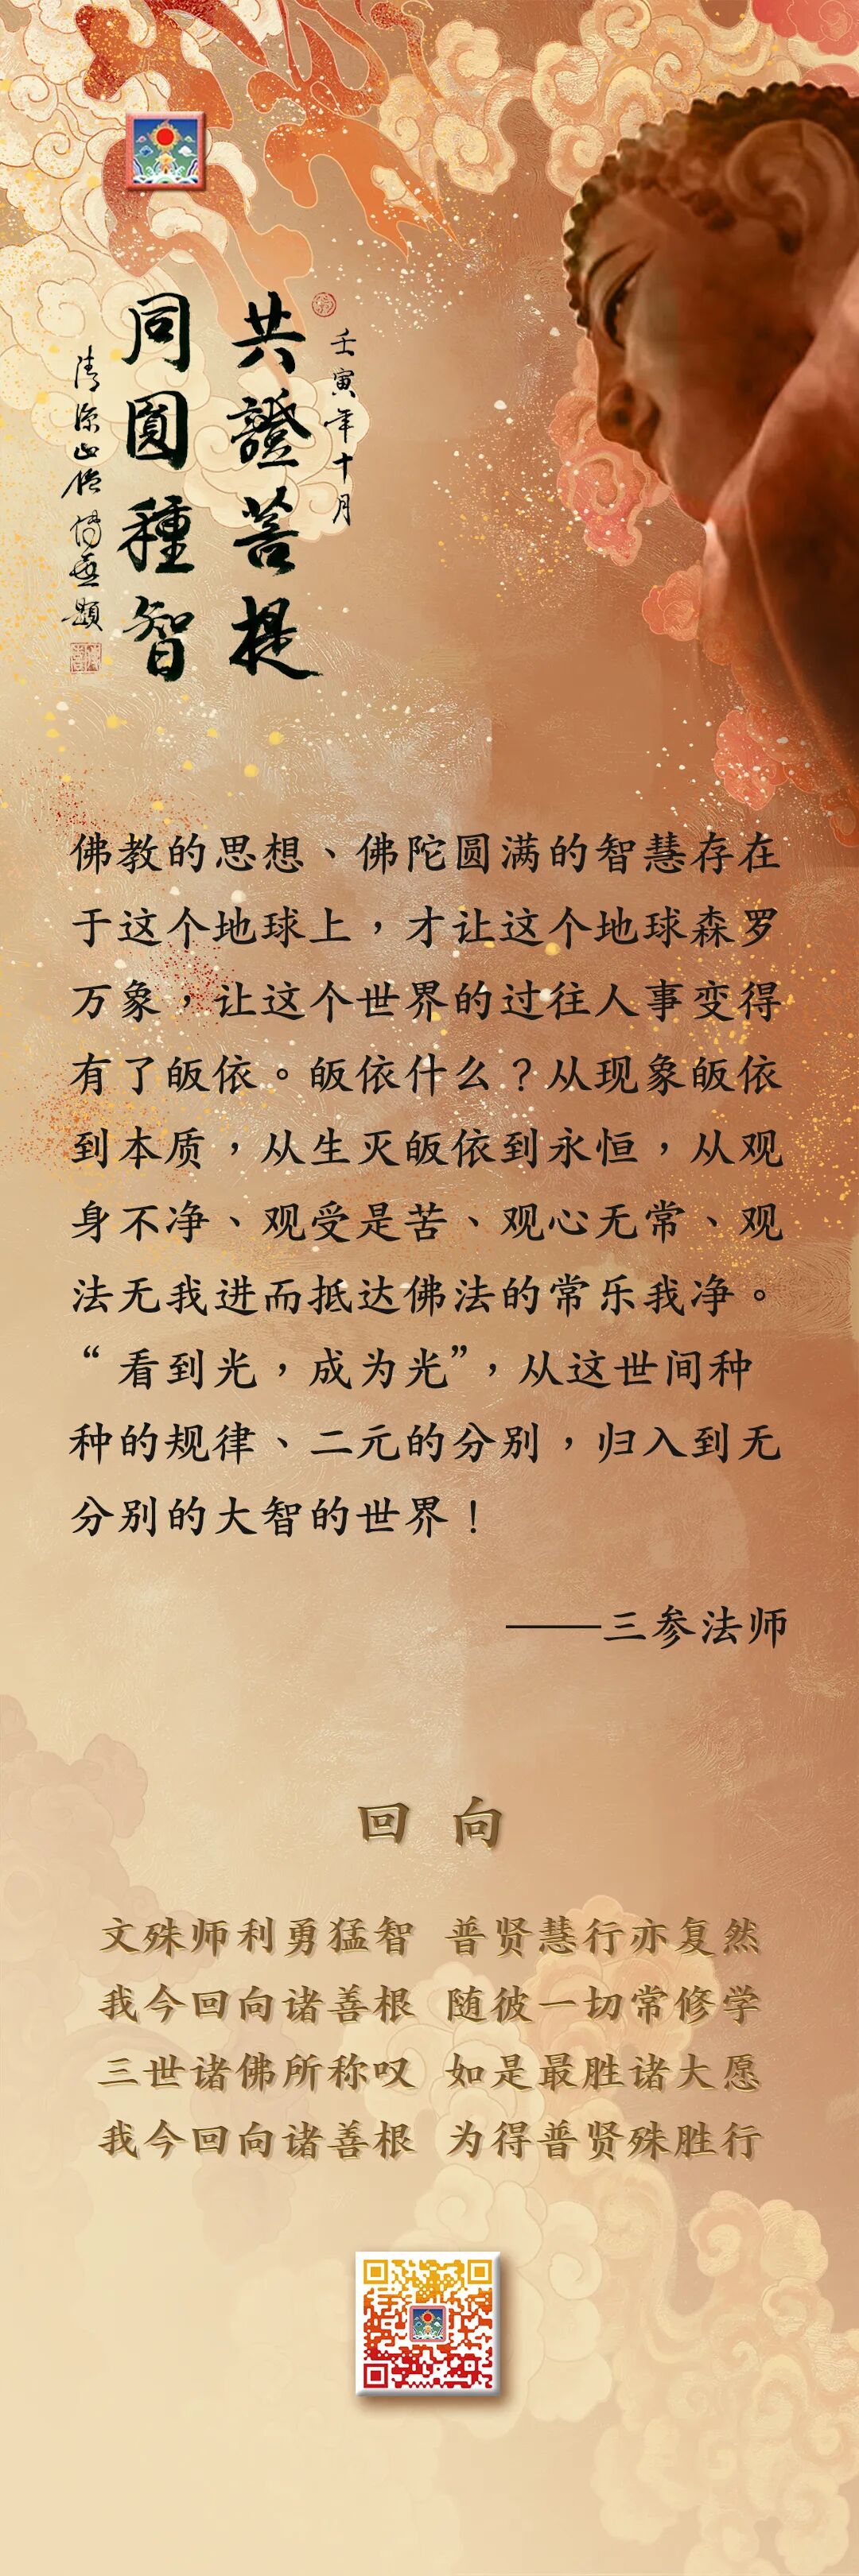 壬寅年十月
共證菩提
同圓種智
佛教的思想、佛陀圆满的智慧存在
于这个地球上，才让这个地球森罗
万象，让这个世界的过往人事变得
有了皈依。皈依什么？从现象皈依
到本质，从生灭皈依到永恒，从观
身不净、观受是苦、观心无常、观
法无我进而抵达佛法的常乐我净。
“看到光，成为光”，从这世间种
种的规律、二元的分别，归入到无
分别的大智的世界！
——三参法师
回 向
文殊师利勇猛智 普贤慧行亦复然
我今回向诸善根 随彼一切常修学
三世诸佛所称叹 如是最胜诸大愿
我今回向诸善根 为得普贤殊胜行